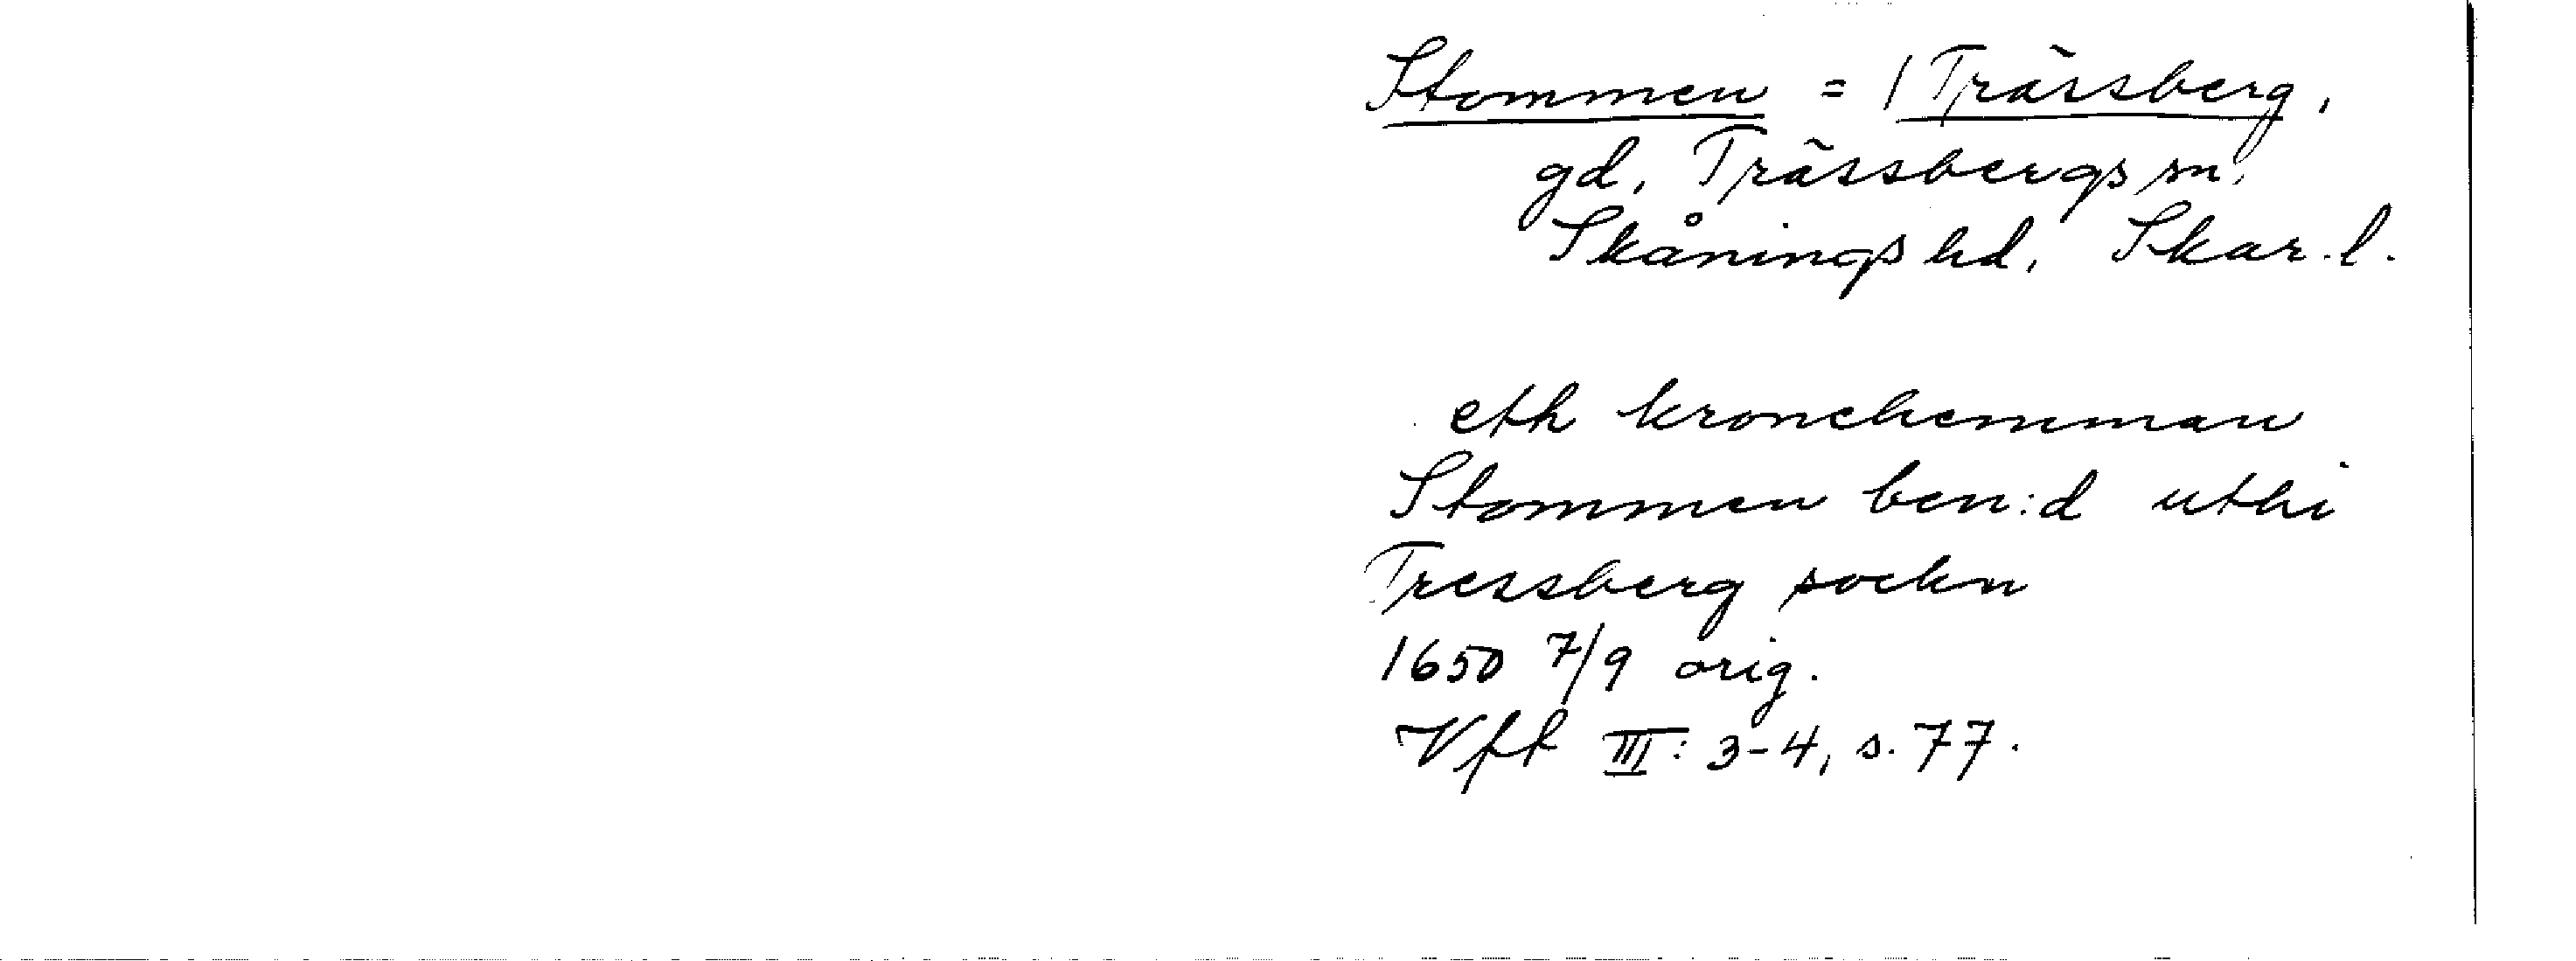 Stommen = / Trässberg,
gd, Trässbergs sn,
Skånings hd, Skar. l.
eth kronehemman
Stommen ben:d uthi
Tressberg sockn
1650 7/9 orig.
Vft III: 3-4, s. 77.